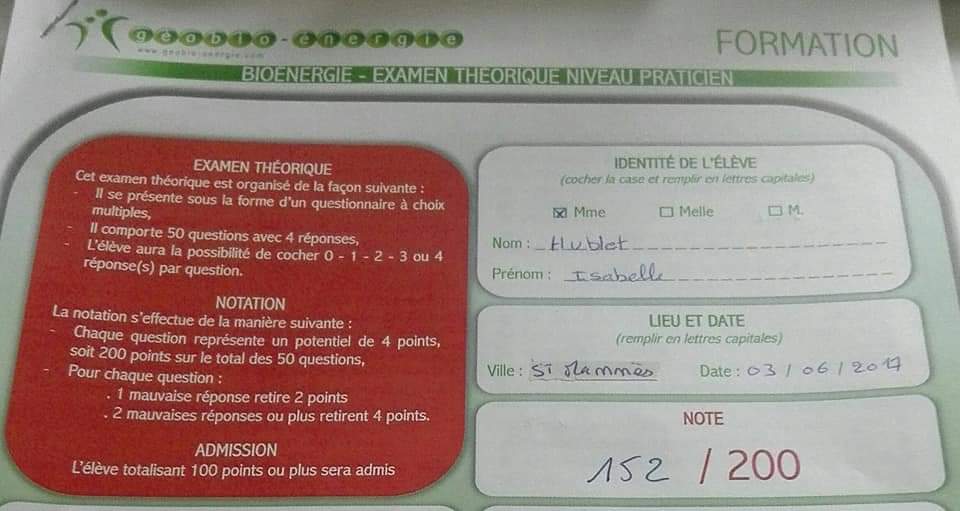 géobio-énergie
www.geobio-energie.com
FORMATION
BIOENERGIE - EXAMEN THEORIQUE NIVEAU PRATICIEN
EXAMEN THÉORIQUE
Cet examen théorique est organisé de la façon suivante :
- Il se présente sous la forme d'un questionnaire à choix
multiples,
- Il comporte 50 questions avec 4 réponses,
- L'élève aura la possibilité de cocher 0 - 1 - 2 - 3 ou 4
réponse(s) par question.
NOTATION
La notation s'effectue de la manière suivante :
- Chaque question représente un potentiel de 4 points,
soit 200 points sur le total des 50 questions,
- Pour chaque question :
. 1 mauvaise réponse retire 2 points
. 2 mauvaises réponses ou plus retirent 4 points.
ADMISSION
L'élève totalisant 100 points ou plus sera admis
IDENTITÉ DE L'ÉLÈVE
(cocher la case et remplir en lettres capitales)
☒ Mme ☐ Melle ☐ M.
Nom : Hublet
Prénom : Isabelle
LIEU ET DATE
(remplir en lettres capitales)
Ville : ST Mammès Date : 03 / 06 / 2017
NOTE
152 / 200